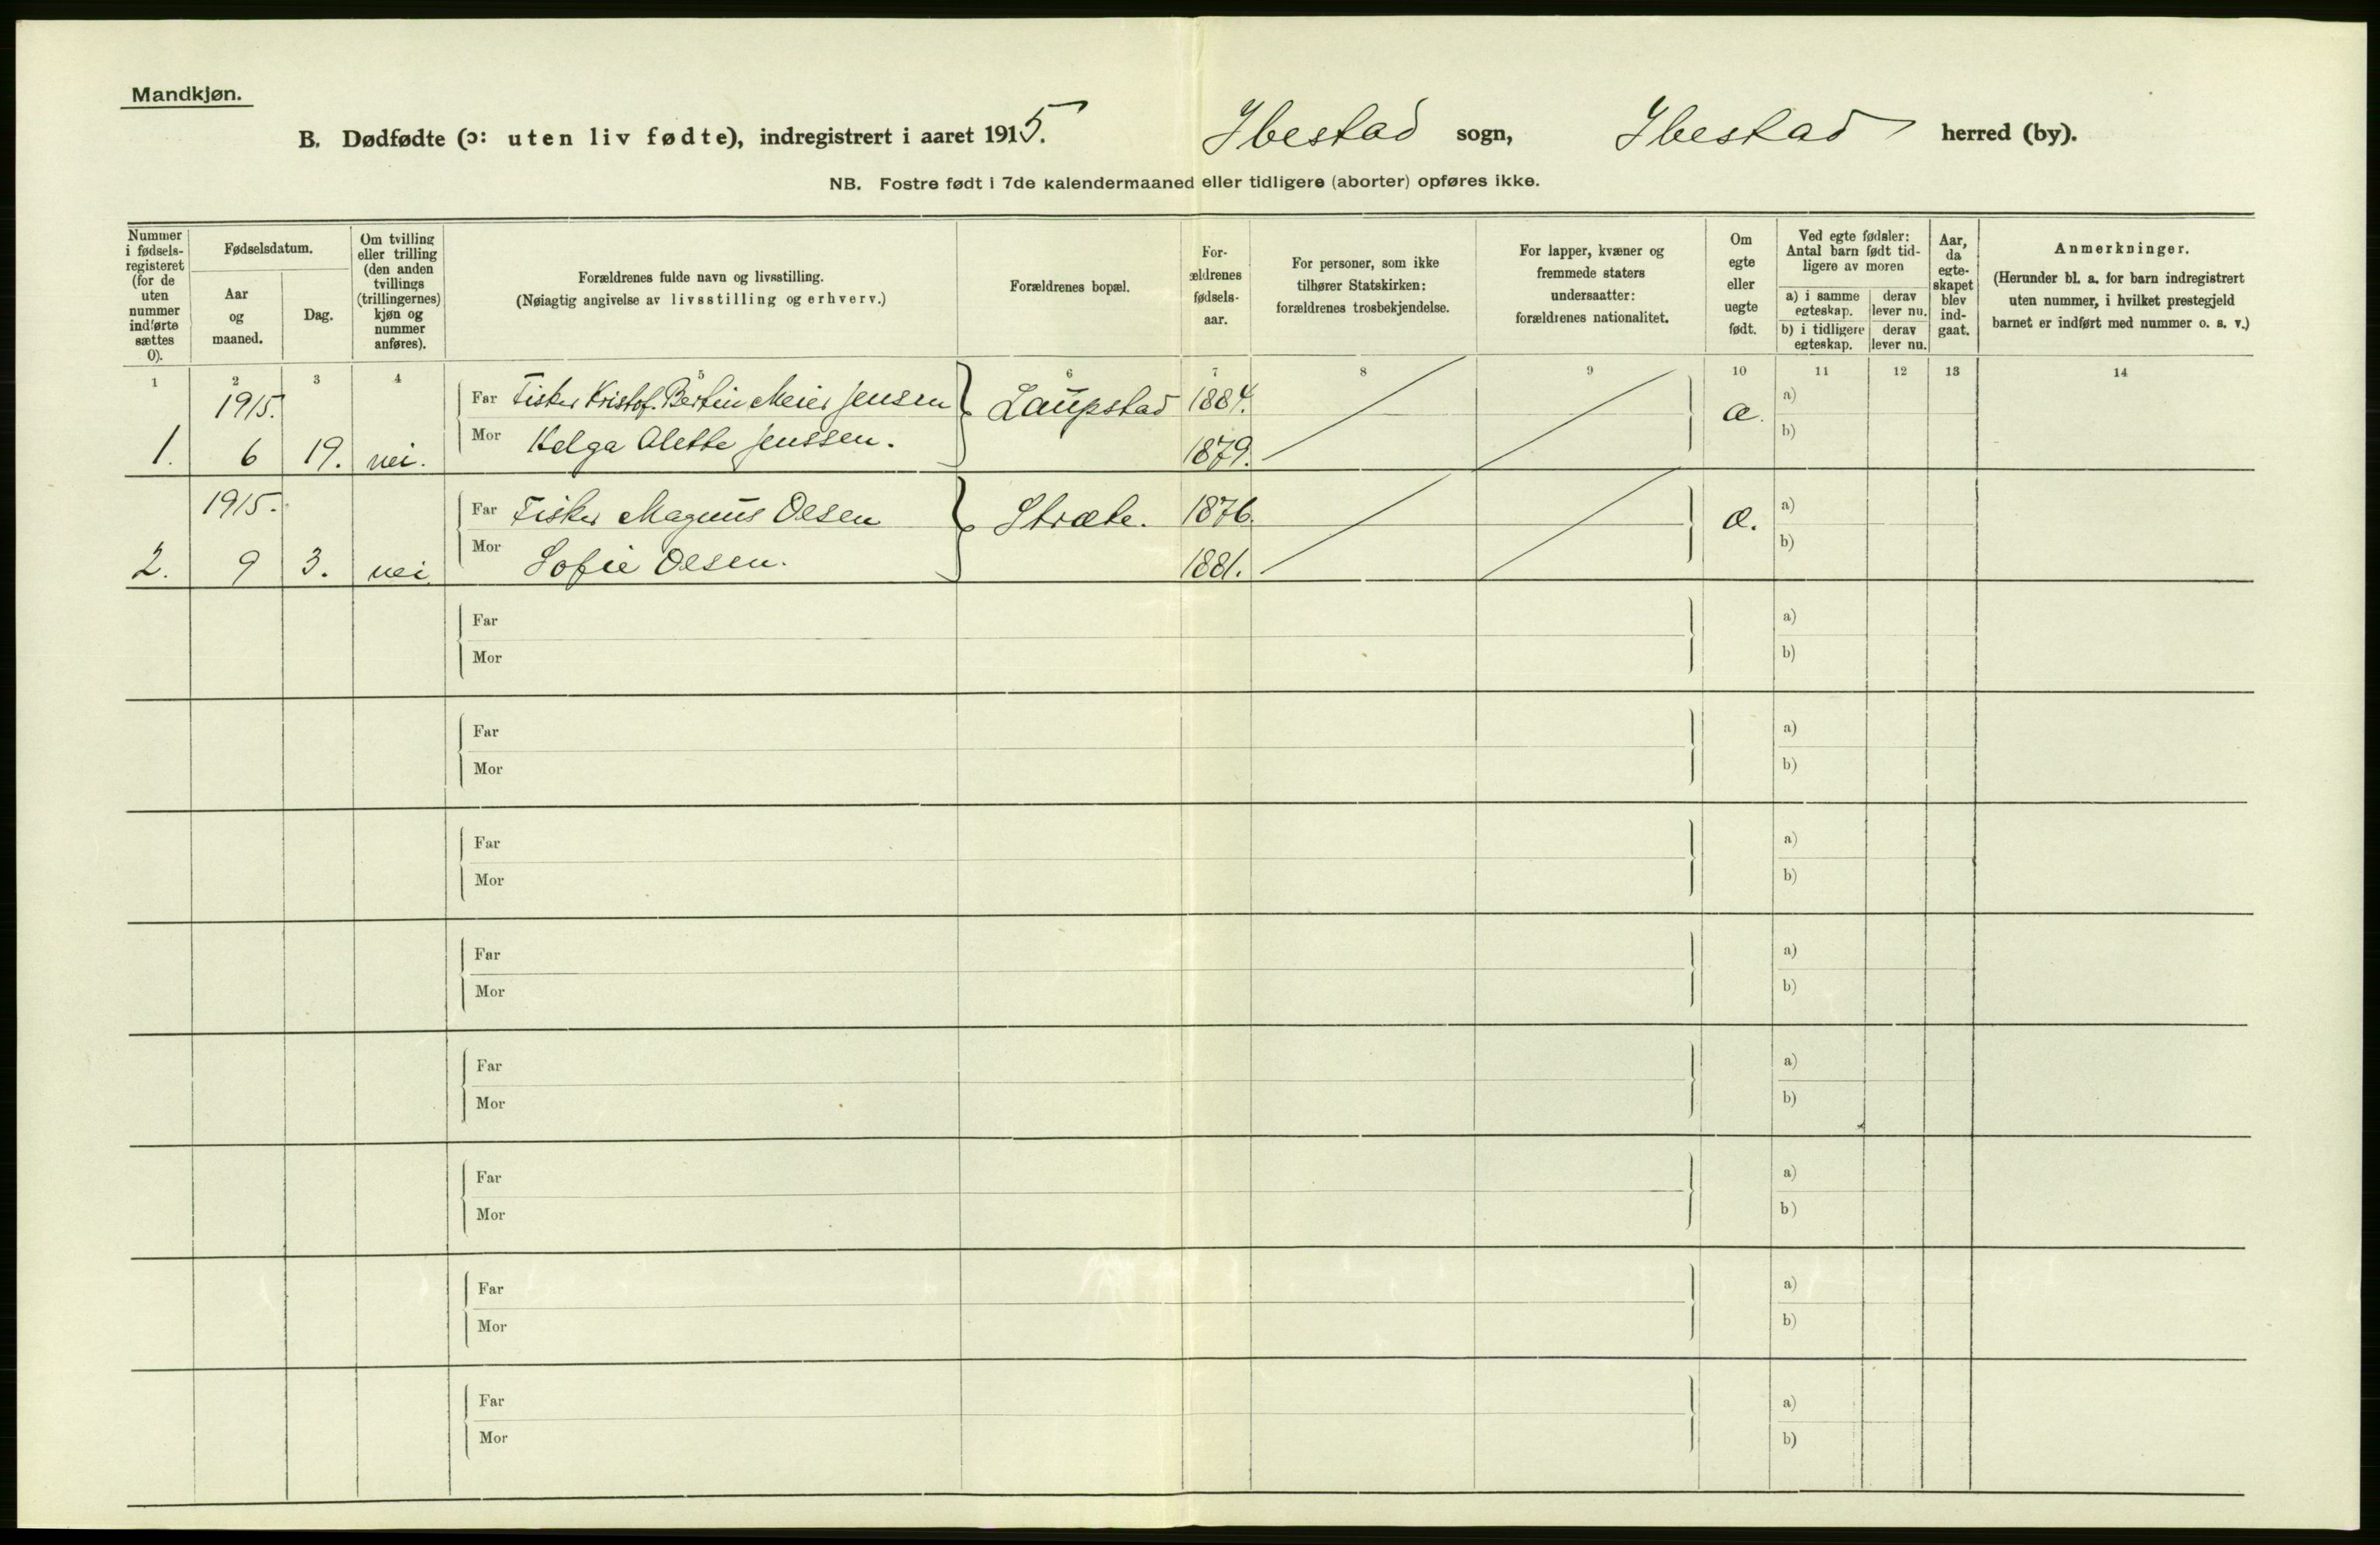 Mandkjøn.
B. Dødfødte (ɔ: uten liv fødte), indregistrert i aaret 1915. Ibestad sogn, Ibestad herred (by).
NB. Fostre født i 7de kalendermaaned eller tidligere (aborter) opføres ikke.
Nummer i fødsels-registeret (for de uten nummer indførte sættes 0).
Fødselsdatum.
Aar og maaned.
Dag.
Om tvilling eller trilling (den anden tvillings (trillingernes) kjøn og nummer anføres).
Forældrenes fulde navn og livsstilling.
(Nøiagtig angivelse av livsstilling og erhverv.)
Forældrenes bopæl.
For-ældrenes fødsels-aar.
For personer, som ikke tilhører Statskirken: forældrenes trosbekjendelse.
For lapper, kvæner og fremmede staters undersaatter: forældrenes nationalitet.
Om egte eller uegte født.
Ved egte fødsler: Antal barn født tid-ligere av moren
a) i samme egteskap. derav lever nu.
b) i tidligere egteskap. derav lever nu.
Aar, da egte-skapet blev ind-gaat.
Anmerkninger.
(Herunder bl. a. for barn indregistrert uten nummer, i hvilket prestegjeld barnet er indført med nummer o. s. v.)
1 2 3 4 5 6 7 8 9 10 11 12 13 14
1915. Far Fisker Kristof. Bertin Meier Jensen Laupstad 1884. æ. a)
1. 6 19. nei. Mor Helga Alette Jenssen. 1879. b)
1915. Far Fisker Magnus Olsen Stræte. 1876. æ. a)
2. 9 3. nei. Mor Sofie Olsen. 1881. b)
Far a)
Mor b)
Far a)
Mor b)
Far a)
Mor b)
Far a)
Mor b)
Far a)
Mor b)
Far a)
Mor b)
Far a)
Mor b)
Far a)
Mor b)